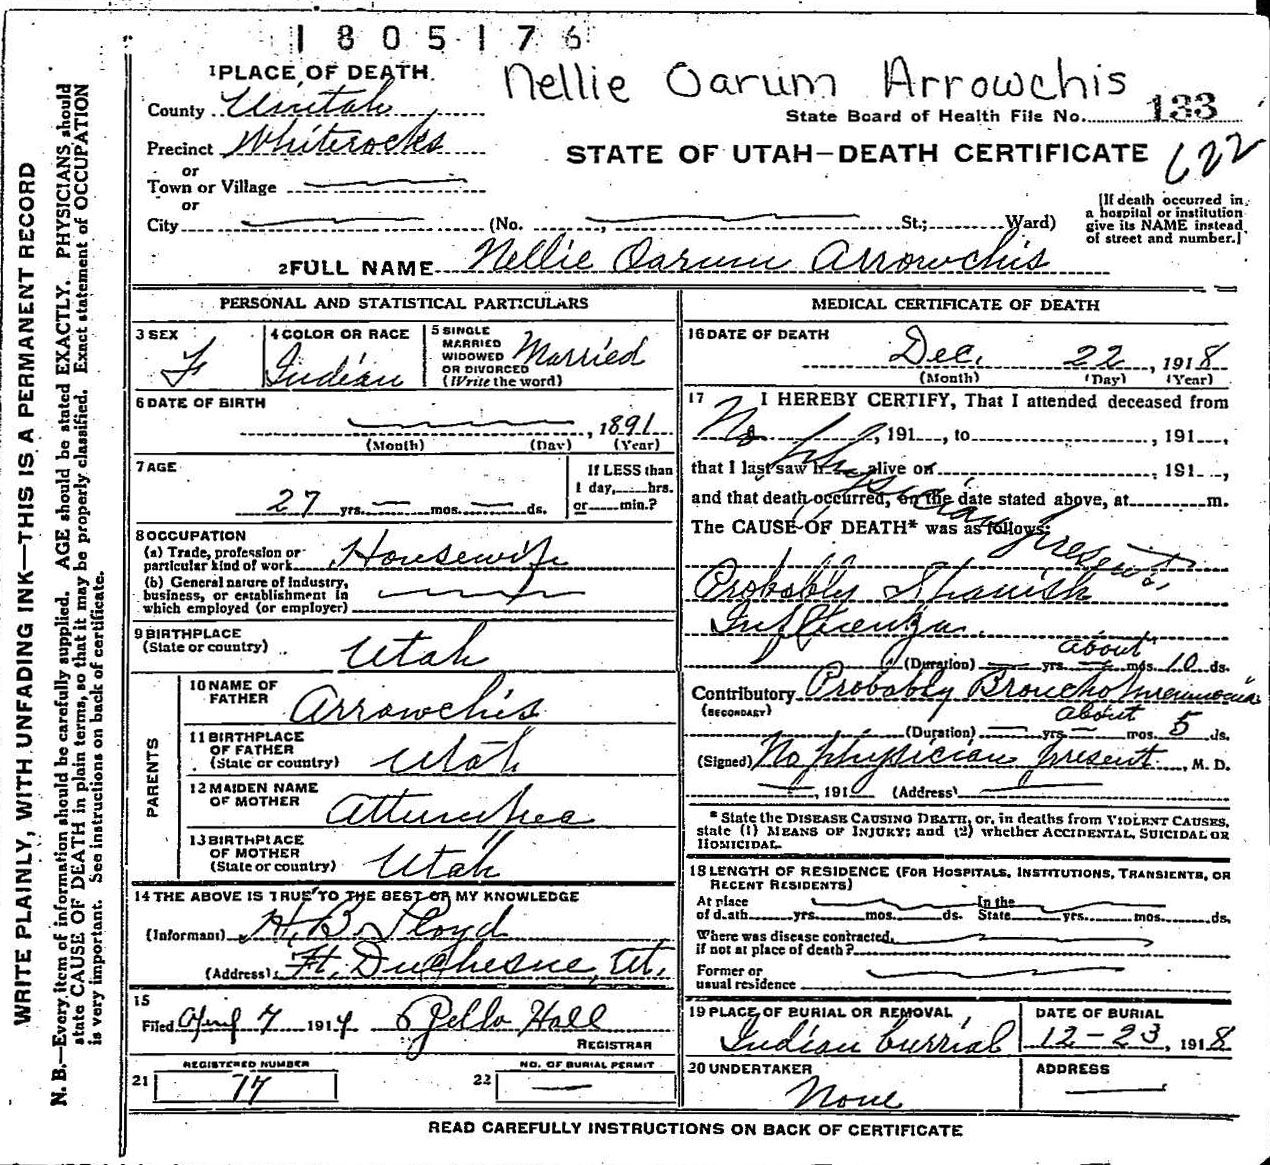 1805176
1 PLACE OF DEATH.
Nellie Oarum Arrowchis
County Uintah
State Board of Health File No. 133
Precinct Whiterocks
STATE OF UTAH—DEATH CERTIFICATE 622
or
Town or Village
or
City (No. , St.; Ward)
[If death occurred in a hospital or institution give its NAME instead of street and number.]
2 FULL NAME Nellie Oarum Arrowchis
PERSONAL AND STATISTICAL PARTICULARS
3 SEX
F
4 COLOR OR RACE
Indian
5 SINGLE
MARRIED
WIDOWED
OR DIVORCED
(Write the word)
Married
6 DATE OF BIRTH
, 1891
(Month) (Day) (Year)
7 AGE
27 yrs. — mos. — ds.
If LESS than
1 day, hrs.
or min.?
8 OCCUPATION
(a) Trade, profession or
particular kind of work Housewife
(b) General nature of industry,
business, or establishment in
which employed (or employer)
9 BIRTHPLACE
(State or country)
Utah
PARENTS
10 NAME OF
FATHER
Arrowchis
11 BIRTHPLACE
OF FATHER
(State or country)
Utah
12 MAIDEN NAME
OF MOTHER
13 BIRTHPLACE
OF MOTHER
(State or country)
Utah
14 THE ABOVE IS TRUE TO THE BEST OF MY KNOWLEDGE
(Informant) H. B. Lloyd
(Address) Ft. Duchesne, Ut.
15
Filed 7 191 Hall
REGISTRAR
21 REGISTERED NUMBER
77
22 NO. OF BURIAL PERMIT
—
MEDICAL CERTIFICATE OF DEATH
16 DATE OF DEATH
Dec. 22, 1918
(Month) (Day) (Year)
17 I HEREBY CERTIFY, That I attended deceased from
, 191 , to , 191 ,
that I last saw h alive on , 191 ,
and that death occurred, on the date stated above, at m.
The CAUSE OF DEATH* was as follows:
No physician present
Probably Spanish
Influenza
(Duration) — yrs. — mos. about 10 ds.
Contributory Probably Broncho pneumonia
(SECONDARY)
(Duration) — yrs. — mos. about 5 ds.
(Signed) No physician present, M. D.
, 191 (Address)
* State the DISEASE CAUSING DEATH, or, in deaths from VIOLENT CAUSES,
state (1) MEANS OF INJURY; and (2) whether ACCIDENTAL, SUICIDAL OR
HOMICIDAL.
18 LENGTH OF RESIDENCE (FOR HOSPITALS, INSTITUTIONS, TRANSIENTS, OR
RECENT RESIDENTS)
At place
of death yrs. mos. ds.
In the
State yrs. mos. ds.
Where was disease contracted,
if not at place of death?
Former or
usual residence
19 PLACE OF BURIAL OR REMOVAL
Indian burrial
DATE OF BURIAL
12-23, 1918
20 UNDERTAKER
None
ADDRESS
—
READ CAREFULLY INSTRUCTIONS ON BACK OF CERTIFICATE
WRITE PLAINLY, WITH UNFADING INK—THIS IS A PERMANENT RECORD
N. B.—Every item of information should be carefully supplied. AGE should be stated EXACTLY. PHYSICIANS should
state CAUSE OF DEATH in plain terms, so that it may be properly classified. Exact statement of OCCUPATION
is very important. See instructions on back of certificate.